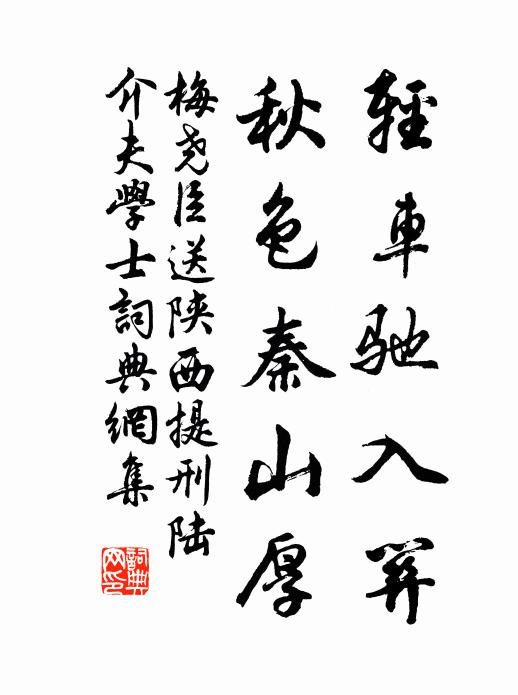 輕車馳入關
秋色秦山厚
梅堯臣送陝西提刑陸
介夫學士詞典網集
詞典
网印